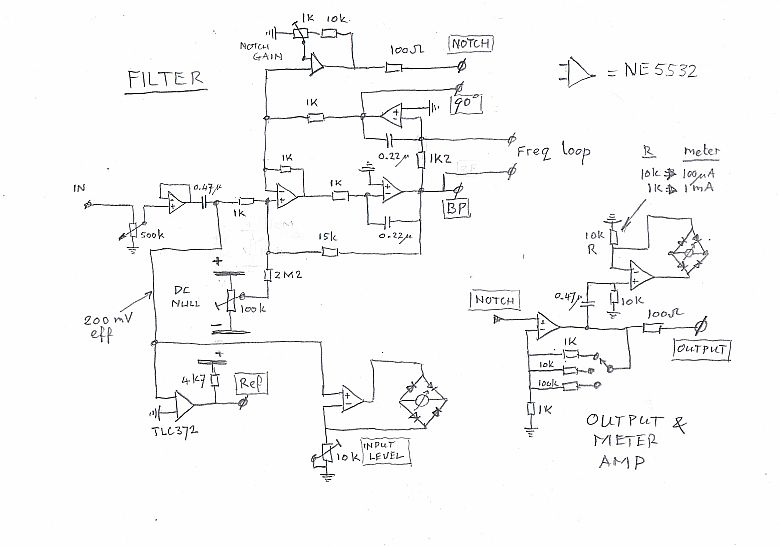 FILTER
NOTCH
GAIN
1K
10k
100Ω
NOTCH
= NE5532
1K
90°
0.22µ
1K2
Freq loop
R meter
10k → 100µA
1K → 1mA
IN
500k
0.47µ
1K
1K
1K
0.22µ
BP
15k
2M2
+
DC
NULL
100k
−
200 mV
eff
+
4K7
Ref
TLC372
10k
INPUT
LEVEL
10k
R
0.47µ
10k
NOTCH
1K
10k
100k
1K
100Ω
OUTPUT
OUTPUT &
METER
AMP